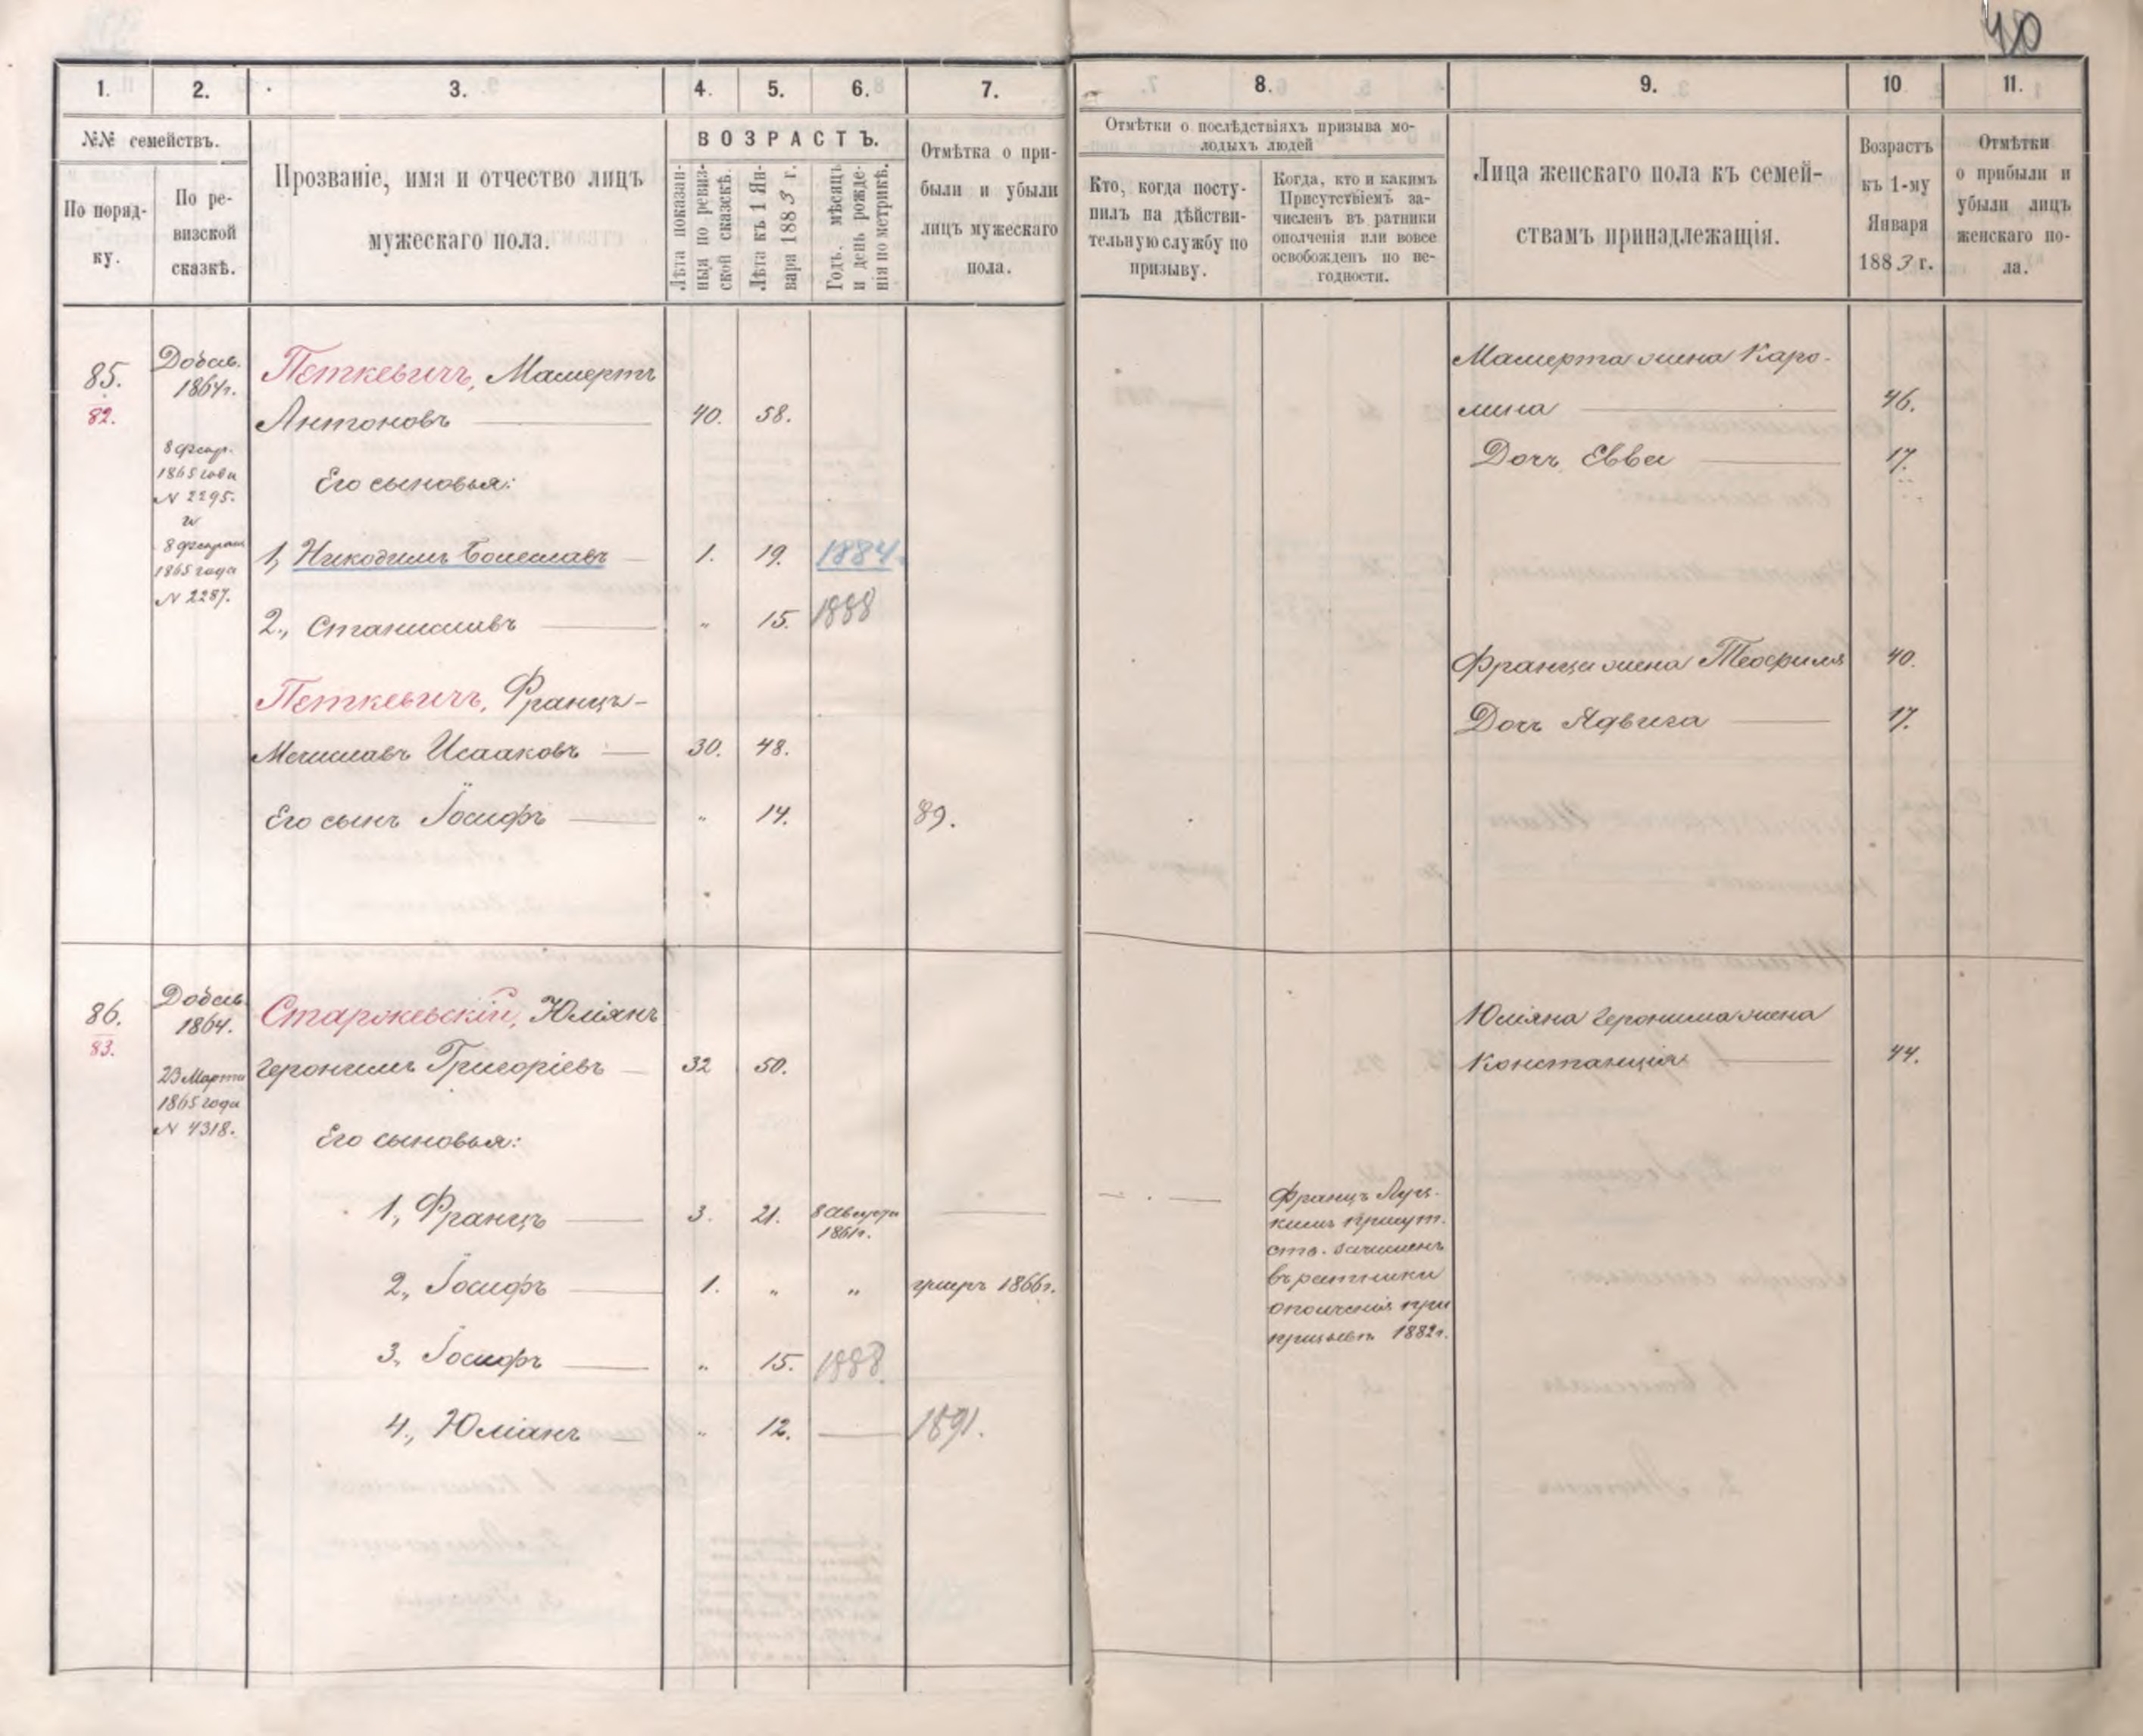 40
1. 2. 3. 4. 5. 6. 7. 8. 9. 10 11.
№№ семействъ.
По поряд-
ку.
По ре-
визской
сказкѣ.
Прозваніе, имя и отчество лицъ
мужескаго пола.
ВОЗРАСТЪ.
Лѣта показан-
ныя по ревиз-
ской сказкѣ.
Лѣта къ 1 Ян-
варя 1883 г.
Годъ, мѣсяцъ
и день рожде-
нія по метрикѣ.
Отмѣтка о при-
были и убыли
лицъ мужескаго
пола.
Отмѣтки о послѣдствіяхъ призыва мо-
лодыхъ людей
Кто, когда посту-
пилъ на дѣйстви-
тельную службу по
призыву.
Когда, кто и какимъ
Присутствіемъ за-
численъ въ ратники
ополченія или вовсе
освобожденъ по не-
годности.
Лица женскаго пола къ семей-
ствамъ принадлежащія.
Возрастъ
къ 1-му
Января
1883 г.
Отмѣтки
о прибыли и
убыли лицъ
женскаго по-
ла.
85.
82.
Добав.
1864г.
8 февр.
1865 года
N 2295.
и
8 февраля
1865 года
N 2287.
Петкевичъ, Мамертъ
Антоновъ 40. 58.
Его сыновья:
1, Никодимъ Болеславъ 1. 19. 1884.
2., Станиславъ " 15. 1888
Петкевичъ, Францъ-
Мечиславъ Исааковъ 30. 48.
Его сынъ Іосифъ " 14. 89.
Мамерта жена Каро-
лина 46.
Дочь Евва 17.
Франца жена Теофиля 40.
Дочь Ядвига 17.
86.
83.
Добав.
1864.
23 Марта
1865 года
N 4318.
Старжевскій, Юліянъ
Геронимъ Григоріевъ 32 50.
Его сыновья:
1, Францъ 3. 21. 8 Августа
1861г.
2., Іосифъ 1. " " умеръ 1866г.
3., Іосифъ " 15. 1888.
4., Юліанъ " 12. 1891.
Францъ Луц-
кимъ присут.
ств. зачисленъ
въ ратники
ополченія при
призывѣ 1882г.
Юліяна Геронима жена
Констанція 44.